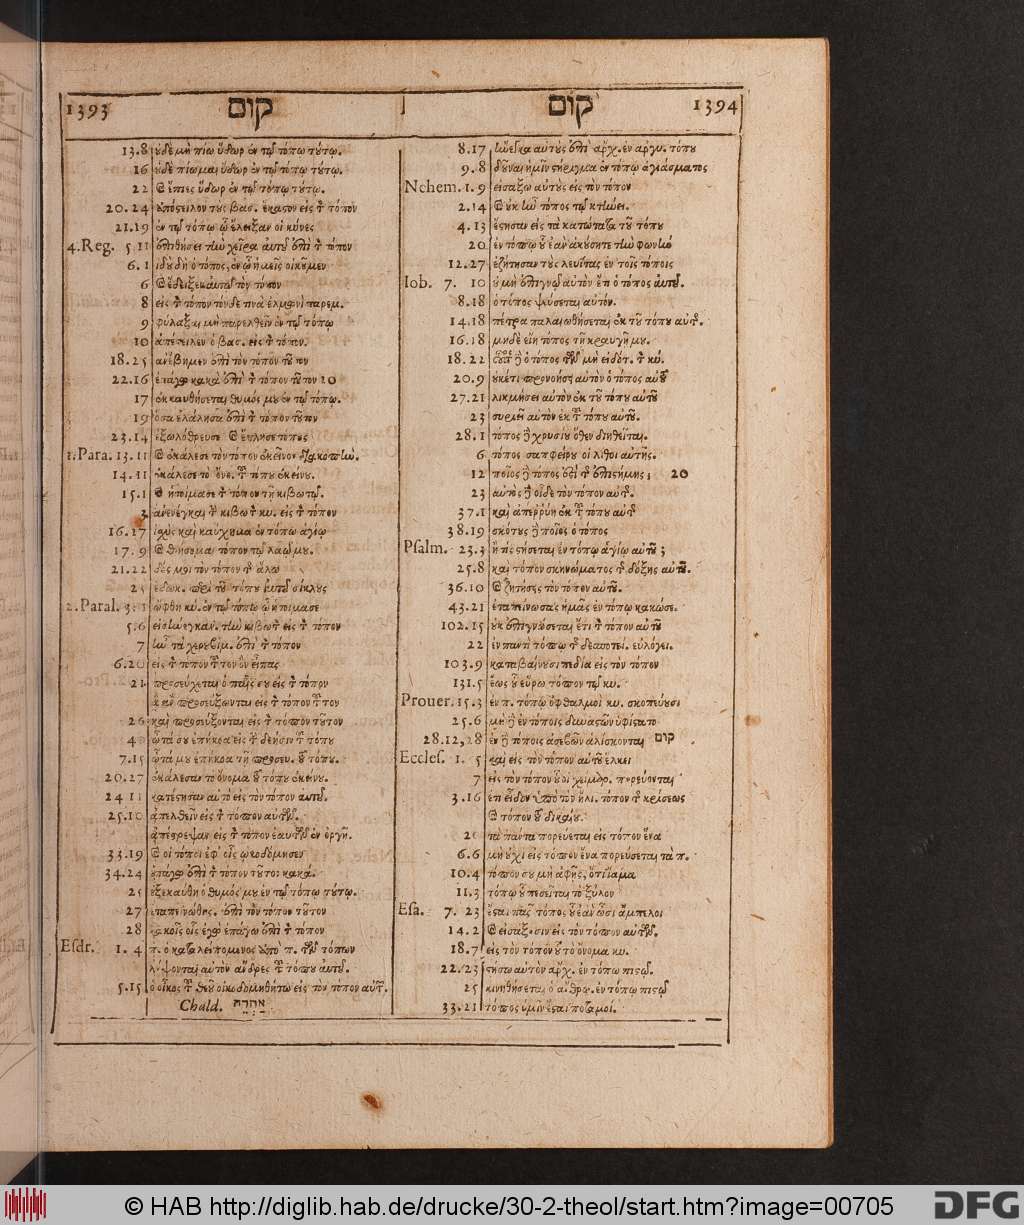 1393 קום
13.8 ὐδὲ μὴ πίω ὕδωρ ἐν τῷ τόπῳ τύτῳ.
16 ὐδὲ πίωμαι ὕδωρ ἐν τῷ τόπῳ τύτῳ.
22 ἔπιες ὕδωρ ἐν τῷ τόπῳ τύτῳ.
20.24 βασ. ἕκαστον εἰς τόπον
21.19 ἐν τῷ τόπῳ ᾧ ἔλειξαν οἱ κύνες
4.Reg. 5.11 ἐπιθήσει τὴν χεῖρα αὐτῦ ἐπὶ τόπον
6.1 ἰδὺ δὴ ὁ τόπος, ἐν ᾧ ἡμεῖς οἰκῦμεν
6 ἔδειξεν αὐτῷ τὸν τόπον
8 εἰς τόπον τόνδε τινὰ παρεμ.
9 φύλαξαι μὴ παρελθεῖν ἐν τῷ τόπῳ
10 ἀπέστειλεν ὁ βασ. εἰς τόπον.
18.25 ἀνέβημεν ἐπὶ τὸν τόπον τῦτον
22.16 ἐπάγω κακὰ ἐπὶ τόπον τῦτον 10
17 ἐκκαυθήσεται θυμός μυ ἐν τῷ τόπῳ.
19 ὅσα ἐλάλησα ἐπὶ τόπον τῦτον
23.14 ἐξωλόθρευσε ἔπλησε τόπυς
1.Para. 13.11 ἐκάλεσε τὸν τόπον ἐκεῖνον
14.11 ἐκάλεσε τὸ ὄνο. τόπυ ἐκείνυ.
15.1 ἡτοίμασε τόπον τῇ κιβωτῷ.
3 ἀνενέγκαι κιβωτ κυ. εἰς τόπον
16.27 ἰσχὺς καὶ καύχημα ἐν τόπῳ ἁγίῳ
17.9 θήσομαι τόπον τῷ λαῷ μυ.
21.22 δός μοι τὸν τόπον ἅλω
25 ἔδωκ. τόπυ αὐτῦ σίκλυς
2.Paral. 3.1 ὤφθη κυ. ἐν τῷ τόπῳ ᾧ ἡτοίμασε
5.6 τὴν κιβωτ εἰς τόπον
7 τὰ χερυβὶμ. ἐπὶ τόπον
6.20 εἰς τόπον τον ὃν εἶπας
21 προσεύχεται ὁ παῖς συ εἰς τόπον
προσεύξωνται εἰς τόπον τον
26 καὶ προσεύξονται εἰς τόπον τῦτον
40 ὦτά συ ἐπήκοα εἰς δέησιν τόπυ
7.15 ὦτά μυ ἐπήκοα τῇ προσευ. τόπυ.
20.27 ἐκάλεσαν τὸ ὄνομα τόπυ ἐκείνυ.
24.11 κατέστησαν αὐτὸ εἰς τὸν τόπον αὐτῦ.
25.10 ἀπελθεῖν εἰς τόπον αὐτῶν.
ἀπέστρεψαν εἰς τόπον ἑαυτῶν ἐν ὀργῇ.
33.19 οἱ τόποι ἐφ' οἷς ᾠκοδόμησεν
34.24 ἐπάγω ἐπὶ τόπον τῦτον κακά.
25 ἐξεκαύθη ὁ θυμός μυ ἐν τῷ τόπῳ τύτῳ.
27 ἐταπεινώθης. ἐπὶ τὸν τόπον τῦτον
28 κακοῖς οἷς ἐγὼ ἐπάγω ἐπὶ τόπον
Esdr. 1.4 π. ὁ καταλειπόμενος ἀπὸ π. τῶν τόπων
λήψονται αὐτὸν ἄνδρες τόπυ αὐτῦ.
5.15 ὁ οἶκος θεῦ οἰκοδομηθήτω εἰς τὸν τόπον αὐτ.
Chald.
קום 1394
8.17 αὐτὺς ἐπὶ ἄρχ. ἐν ἀργυ. τόπυ
9.8 δῦναι ἡμῖν στήριγμα ἐν τόπῳ ἁγιάσματος
Nehem. 1.9 εἰσάξω αὐτὺς εἰς τὸν τόπον
2.14 ὐκ ἦν τόπος τῷ κτήνει.
4.13 ἔστησαν εἰς τὰ κατώτατα τῦ τόπυ
20 ἐν τόπῳ ὗ ἐὰν ἀκύσητε τὴν φωνὴν
12.27 ἐζήτησαν τὺς λευίτας ἐν τοῖς τόποις
Iob. 7.10 ὐ μὴ ἐπιγνῷ αὐτὸν ἔτι ὁ τόπος αὐτῦ.
8.18 ὁ τόπος ψεύσεται αὐτόν.
14.18 πέτρα παλαιωθήσεται ἐκ τῦ τόπυ αὐτ.
16.18 μηδὲ εἴη τόπος τῇ κραυγῇ μυ.
18.22 ὁ τόπος τῶν μὴ εἰδότ. κύ.
20.9 ὐκέτι προνοήσει αὐτὸν ὁ τόπος αὐτῦ
27.21 λικμήσει αὐτὸν ἐκ τῦ τόπυ αὐτῦ
23 συριεῖ αὐτὸν ἐκ τόπυ αὐτῦ.
28.1 τόπος χρυσίυ ὅθεν διηθεῖται.
6 τόπος σαπφείρυ οἱ λίθοι αὐτῆς.
12 ποῖος τόπος ἐστὶ ἐπιστήμης; 20
23 αὐτὸς οἶδε τὸν τόπον αὐτ.
37.1 καὶ ἀπερρύη ἐκ τόπυ αὐτ
38.19 σκότυς ποῖος ὁ τόπος
Psalm. 23.3 ἢ τίς στήσεται ἐν τόπῳ ἁγίῳ αὐτῦ;
25.8 καὶ τόπον σκηνώματος δόξης αὐτῦ.
36.10 ζητήσεις τὸν τόπον αὐτῦ.
43.21 ἐταπείνωσας ἡμᾶς ἐν τόπῳ κακώσε.
102.15 ὐκ ἐπιγνώσεται ἔτι τόπον αὐτῦ
22 ἐν παντὶ τόπῳ δεσποτεί. εὐλόγει.
103.9 καταβαίνυσι πεδία εἰς τὸν τόπον
131.5 ἕως ὗ εὕρω τόπον τῷ κυ.
Prouer. 15.3 ἐν π. τόπῳ ὀφθαλμοὶ κυ. σκοπεύυσι
25.6 μὴ ἐν τόποις δυναστῶν ὑφίστατο
28.12,28 ἐν τόποις ἀσεβῶν ἁλίσκονται קום
Eccles. 1.5 καὶ εἰς τὸν τόπον αὐτῦ ἕλκει
7 εἰς τὸν τόπον ὗ οἱ χείμαρ. πορεύονται
3.16 ἔτι εἶδον ὑπὸ τὸν ἥλι. τόπον κρίσεως
τόπον δικαίυ.
20 τὰ πάντα πορεύεται εἰς τόπον ἕνα
6.6 μὴ ὐχὶ εἰς τόπον ἕνα πορεύσεται τὰ π.
10.4 τόπον συ μὴ ἀφῇς, ὅτι ἴαμα
11.3 τόπῳ ὗ πεσεῖται τὸ ξύλον
Esa. 7.23 ἔσται πᾶς τόπος ὗ ἐὰν ὦσι ἄμπελοι
14.2 εἰσάξυσιν εἰς τὸν τόπον αὐτῶν.
18.7 εἰς τὸν τόπον ὗ τὸ ὄνομα κυ.
22.23 στήσω αὐτὸν ἄρχ. ἐν τόπῳ πιστῷ.
25 κινηθήσεται ὁ ἄνθρω. ἐν τόπῳ πιστῷ
33.21 τόπος ὑμῖν ἔσται ποταμοὶ.
© HAB http://diglib.hab.de/drucke/30-2-theol/start.htm?image=00705
DFG